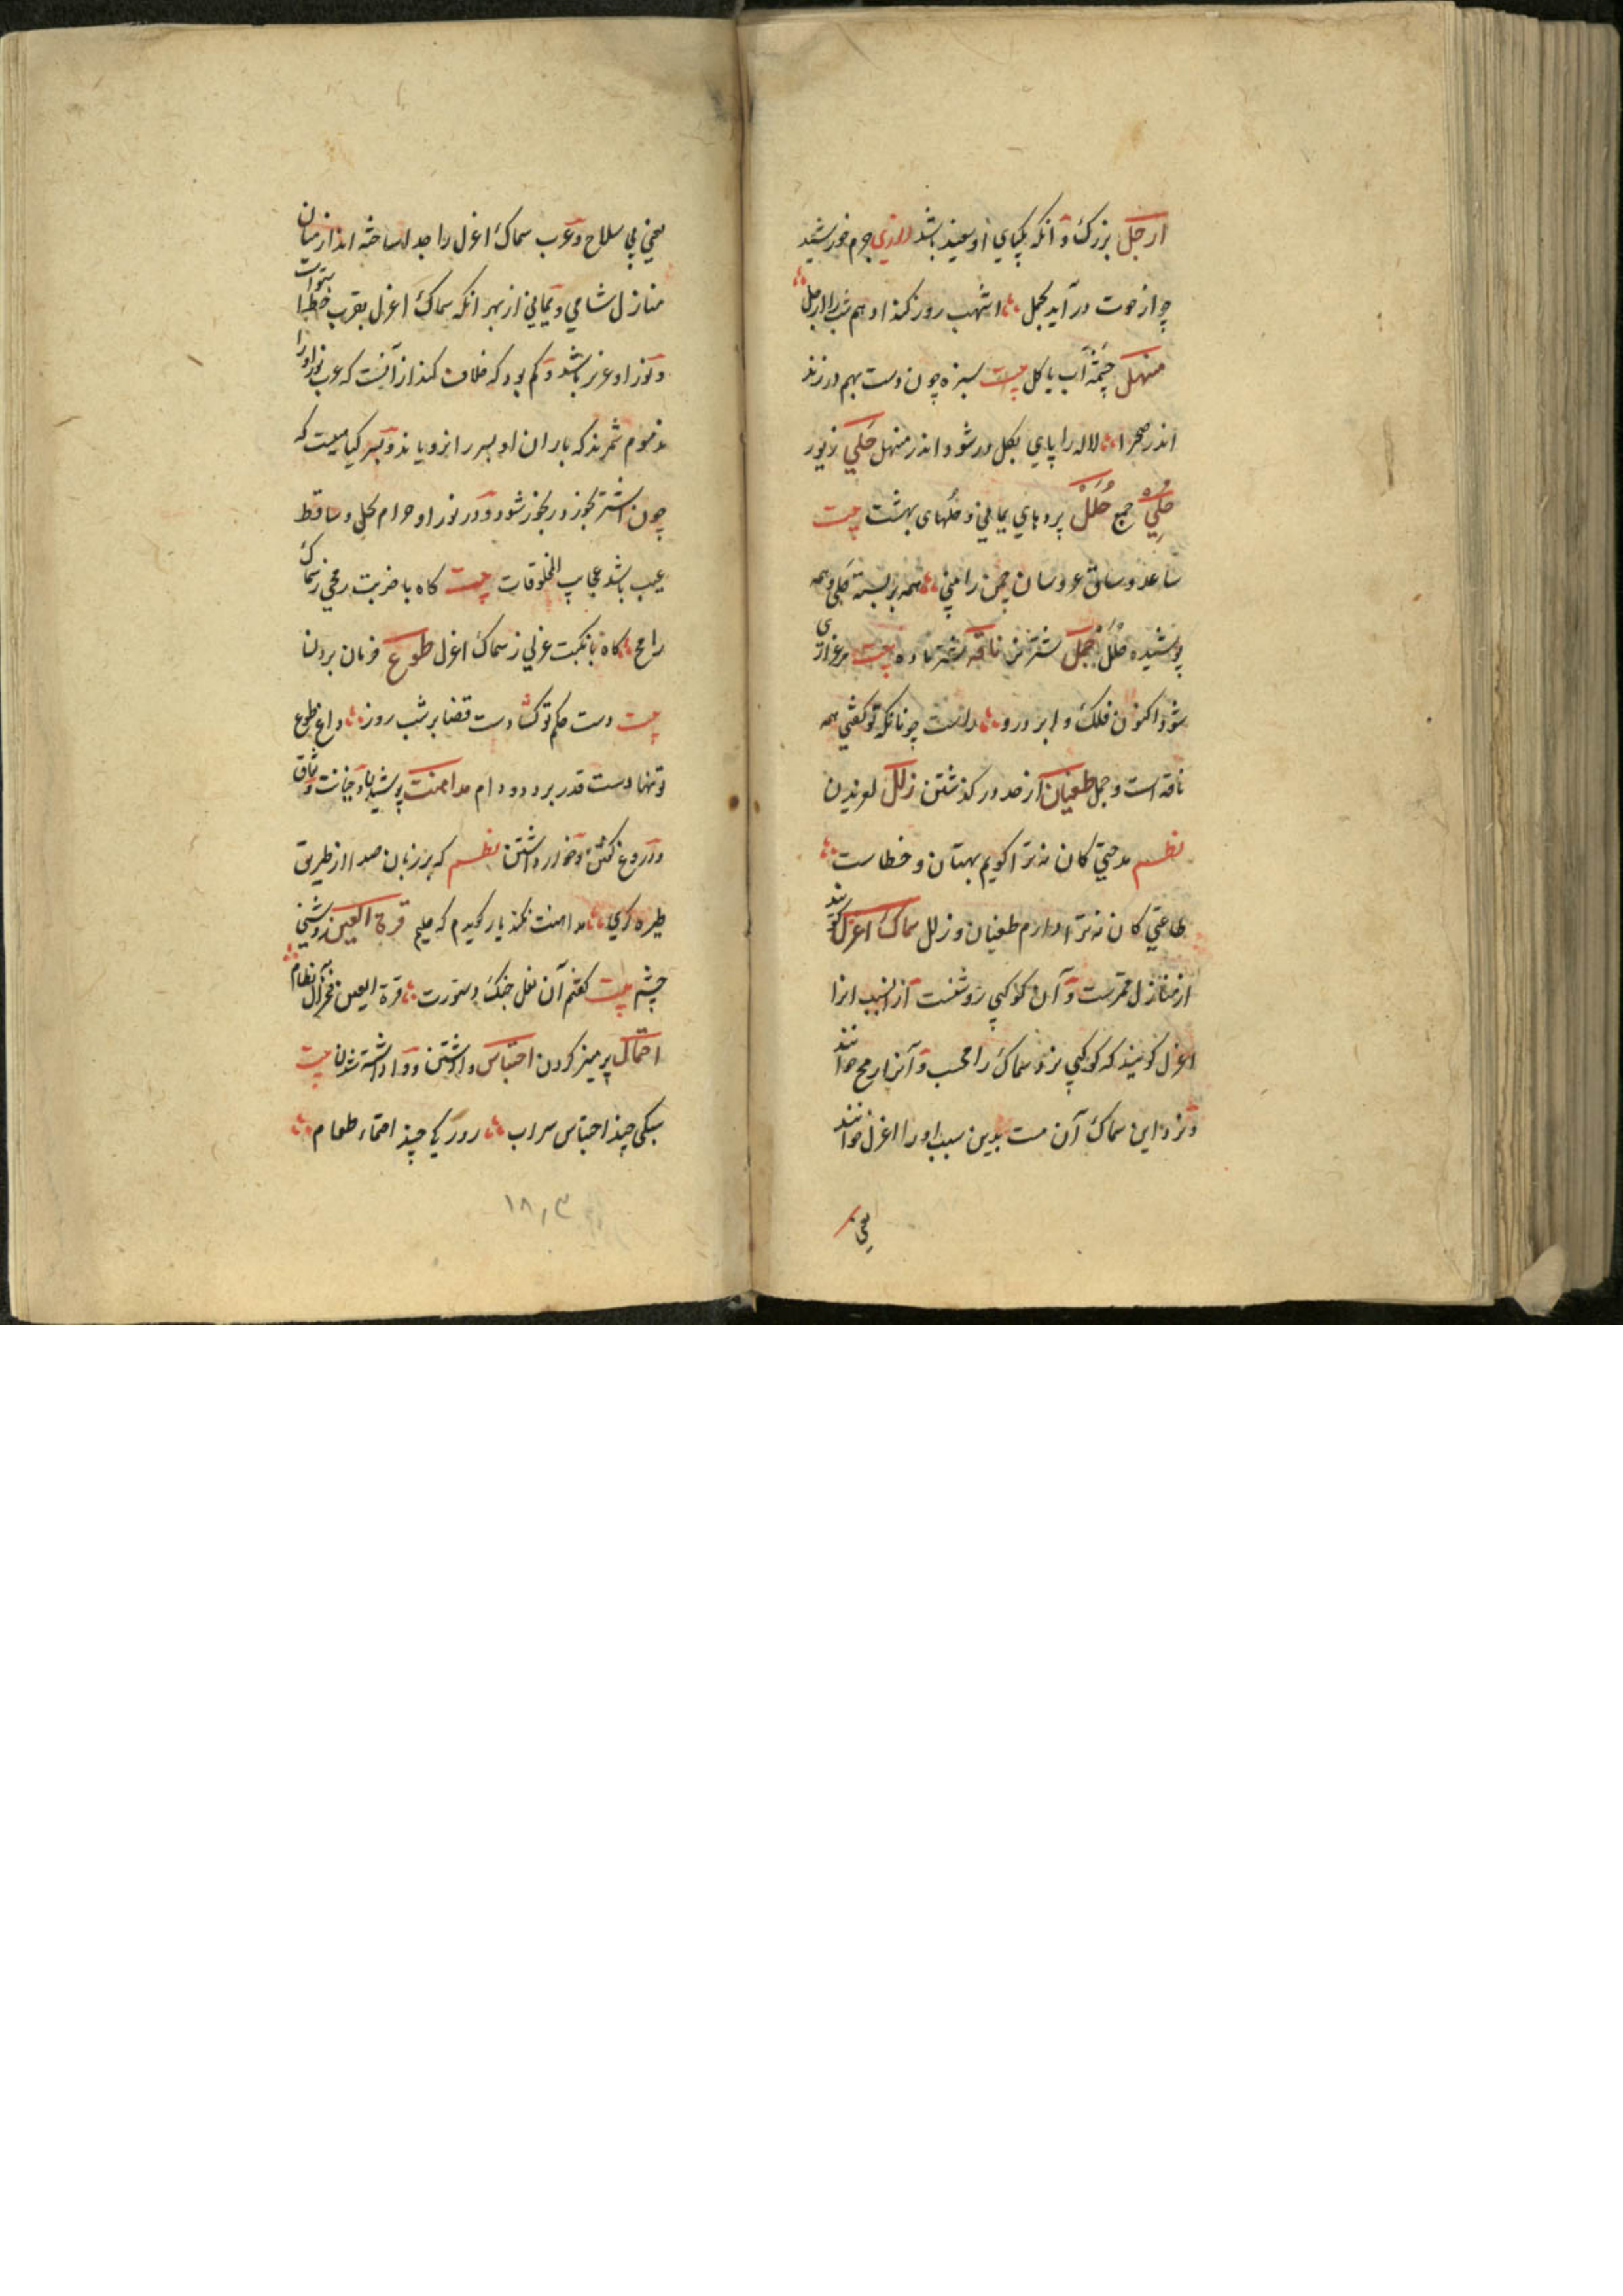 ارجل بزرگ و آنکه یکپای او سفید باشد انوری جرم خورشید
چو از حوت در آید بحمل اشهب روز کند ادهم شب را ارجل
منهل چشمه آب یا کل بیت سبزه چون دست بهم در زند
اندر صحرا لاله را پای بکل در شود اندر منهل حلی زیور
حلی جمع حلل بردهای یمانی و حلهای بهشت بیت
ساعد و ساق عروسان چمن را بینی همه بر بسته حلی و همه
پوشیده حلل جمل شتر نر ناقه شتر ماده بیت مرغزاری
شود اکنون فلک و ابر درو راست چونانکه تو گفتی همه
ناقه است و جمل طغیان از حد در گذشتن زلل لغزیدن
نظم مدحتی کان نه ترا گویم بهتان و خطاست
طاعتی کان نه ترا دارم طغیان و زلل سماک اعزل گویند
از منازل قمرست و آن کوکبی روشنست از انسبب انرا
اعزل گویند که کوکبی نزد سماک رامحست و آنرا رمح خوانند
و نزد این سماک آن نیست بدین سبب او را اعزل خوانند
یعنی
یعنی بی سلاح و عرب سماک اعزل را جدا ساخته اند از میان
منازل شامی و یمانی از بهر انکه سماک اعزل بقرب خط استوات
و نوء او عزیز باشد و کم بود که خلاف کند از آنست که عرب نوء او را
مذموم شمرند که باران او بسر را برویاند و بسر کیاهیست که
چون اشتر بخورد رنجور شود و در نوء او حرام
عیب باشد عجایب المخلوقات بیت کاه با ضربت رمحی ز سماک
رامح کاه با نکبت عزلی ز سماک اعزل طوع فرمان بردن
بیت دست حکم تو کشادست قضا بر شب روز داغ طوع
تو نهادست قدر بر دد و دام مداهنت پوشیدن و خیانت و نفاق
و دروغ گفتن و خوار داشتن نظم که بر زبان صدا از طریق
طیره کری مداهنت نکند یار کویدم که علیم قرة العین روشنی
چشم بیت کفتم آن نعل خنک دستورت قرة العین فخر آل نظام
احتماء پرهیز کردن احتباس وا داشتن و وا داشته شدن بیت
سبکی چند احتباس سراب روزکی چند احتماء طعام
۱۸۰۳